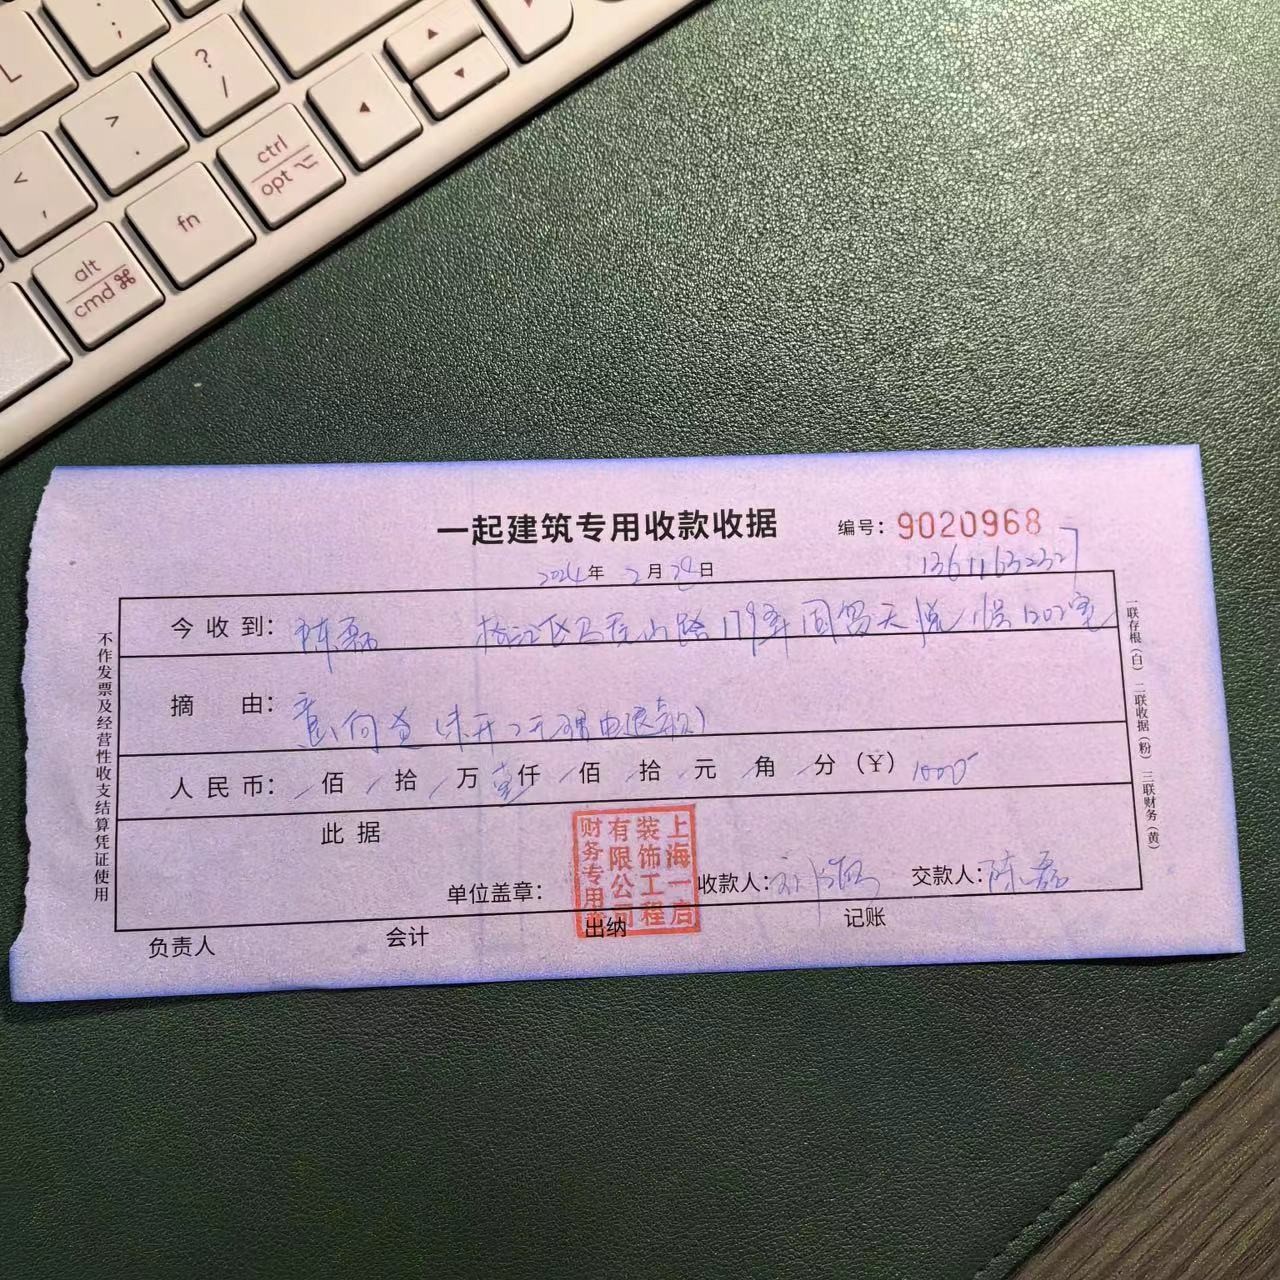 L
:
;
?
/
>
.
<
,
ctrl
opt ⌥
fn
alt
cmd ⌘
▲
▼
◀
一起建筑专用收款收据
编号：9020968
2024年2月28日
今收到：陈磊 松江区 山路179弄 天悦 1202室
摘 由：意向金（未开工无理由退款）
人民币： / 佰 / 拾 / 万 壹仟 / 佰 / 拾 / 元 / 角 / 分 （¥） 1000
此 据
单位盖章：
上海一启
装饰工程
有限公司
财务专用章
收款人：
交款人：陈磊
负责人
会计
出纳
记账
不作发票及经营性收支结算凭证使用
一联存根（白） 二联收据（粉） 三联财务（黄）